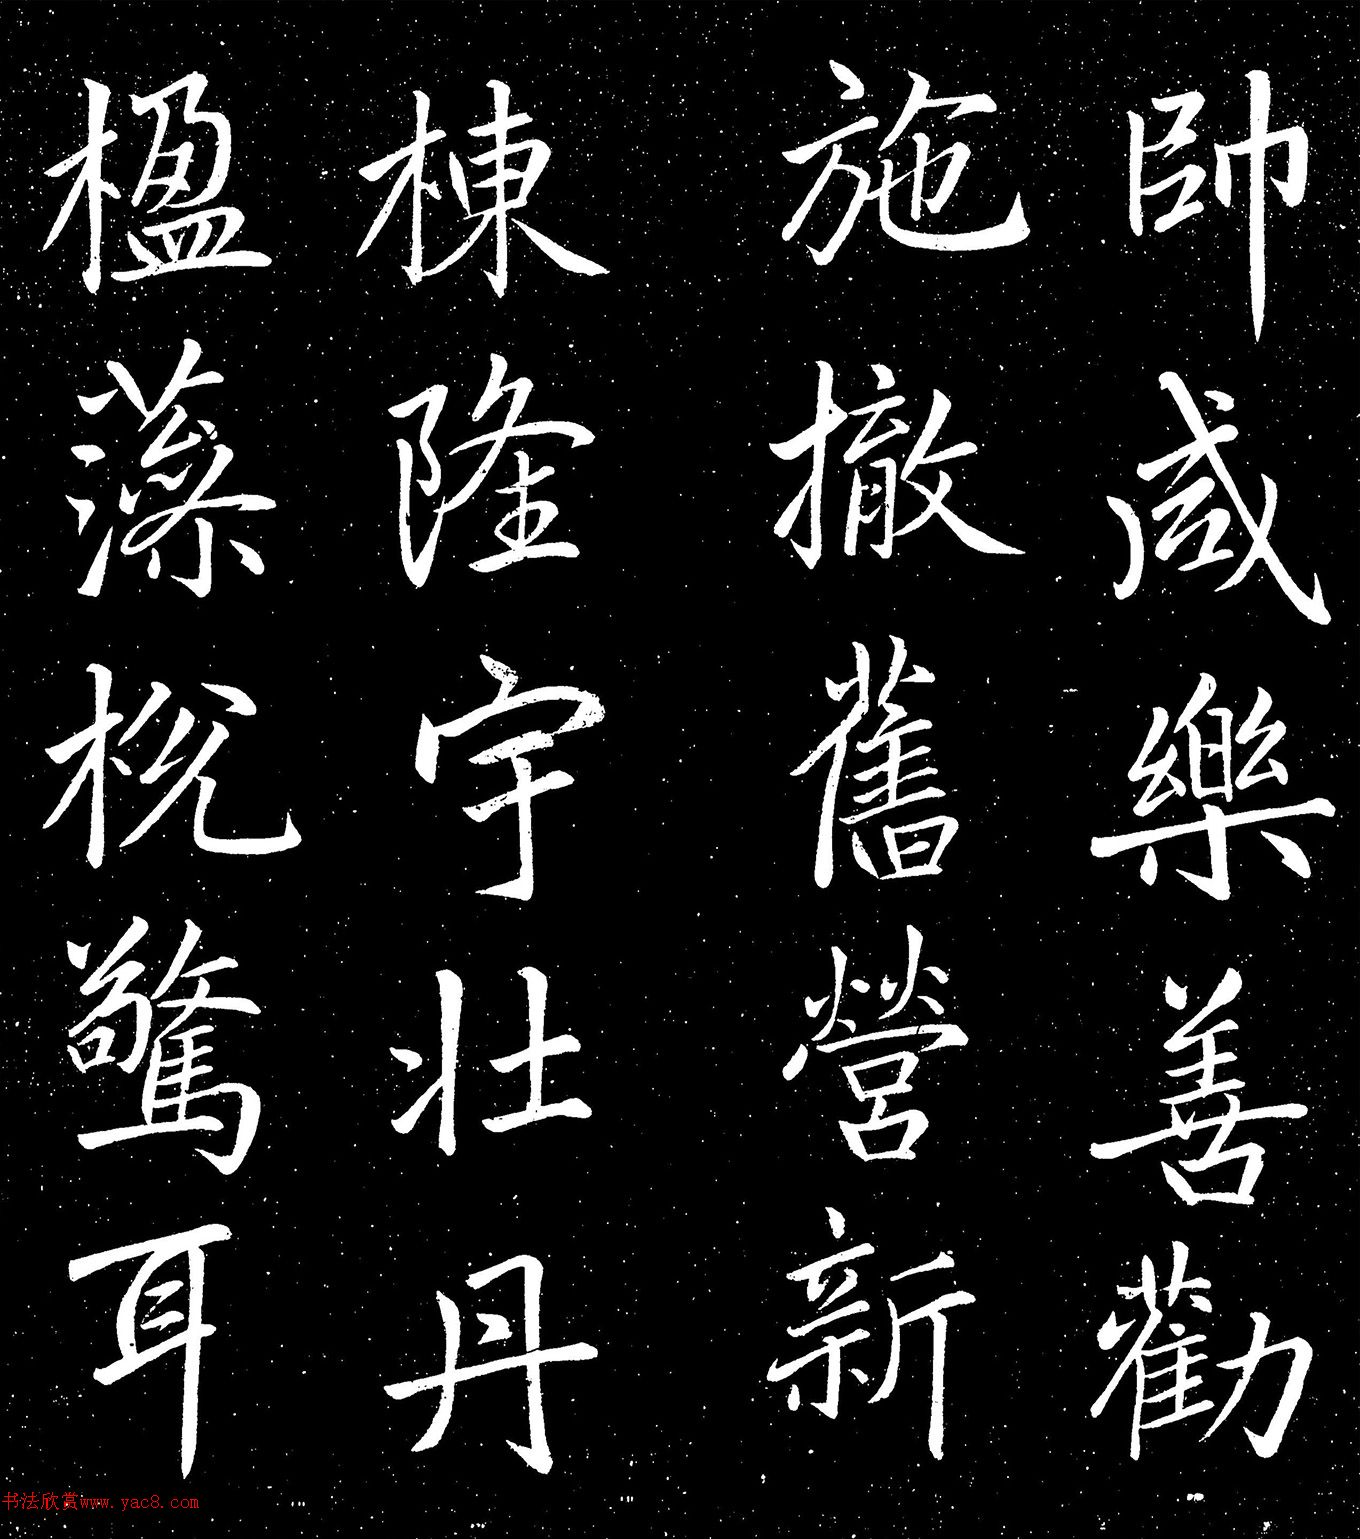 帥咸樂善勸
施撤舊營新
棟隆宇壯丹
楹藻梲驚耳
书法欣赏www.yac8.com